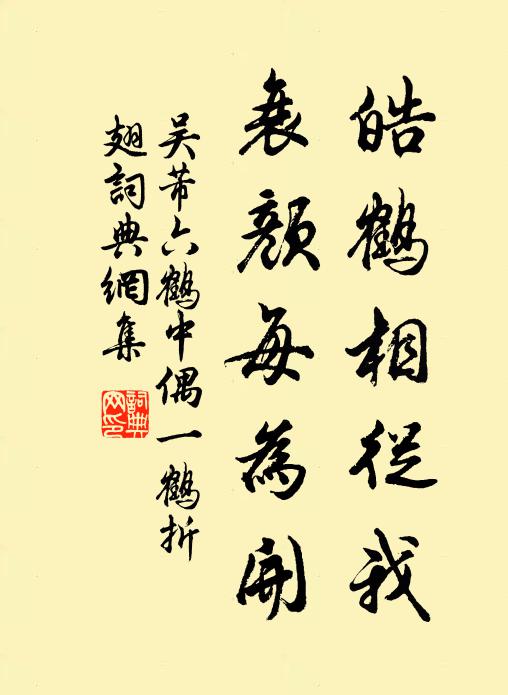 皓鶴相從我
衰顏每為開
吴芾六鶴中偶一鶴折
翅詞典網集
詞典
网印